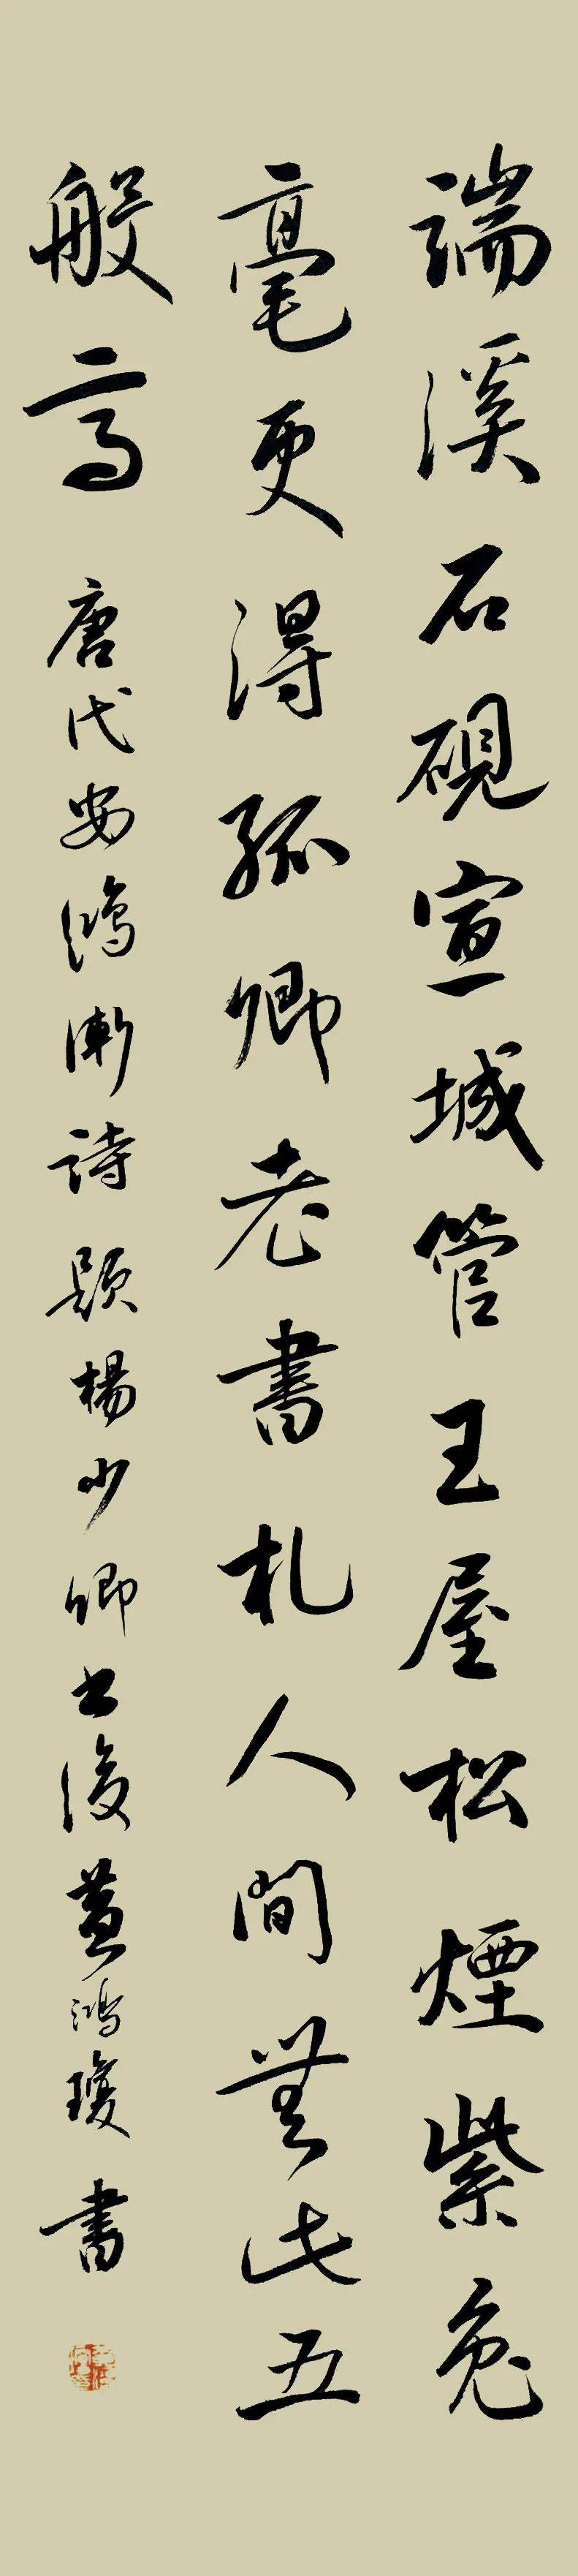 端溪石硯宣城管王屋松煙紫兔
毫更得孤卿老書札人間無此五
般高唐代安鴻漸詩題楊少卿書後黃鴻瓊書